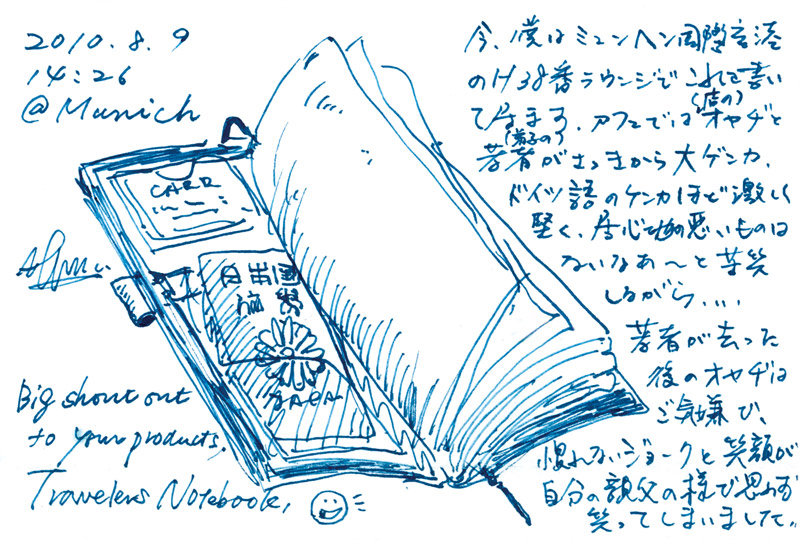 2010.8.9
14:26
@Munich
今、僕はミュンヘン国際空港
のH38番ラウンジでこれを書い
て居ます。カフェでは(店の)オヤヂと
(迷子の)若者がさっきから大ゲンカ、
ドイツ語のケンカほど激しく
堅く、居心地の悪いものは
ないなあ〜と苦笑
しながら、、、
若者が去った
後のオヤヂは
ご気嫌で、
慣れないジョークと笑顔が
自分の親父の様で思わず
笑ってしまいました。
CARD
日本国
旅券
JAPAN
Big shout out
to your products.
Travelers Notebook,